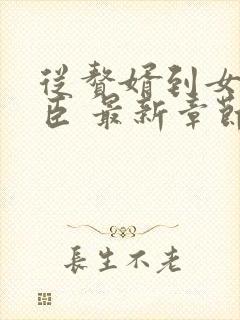 從贅婿到女
臣 最新章節
長生不老